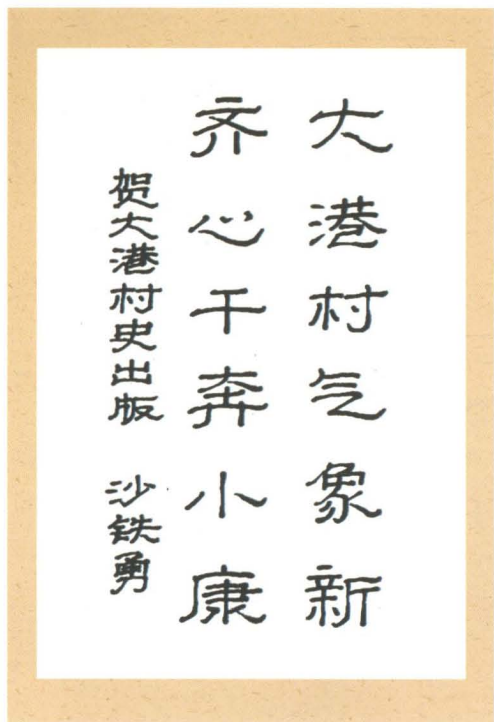 大港村气象新
齐心干奔小康
贺大港村史出版 沙铁勇